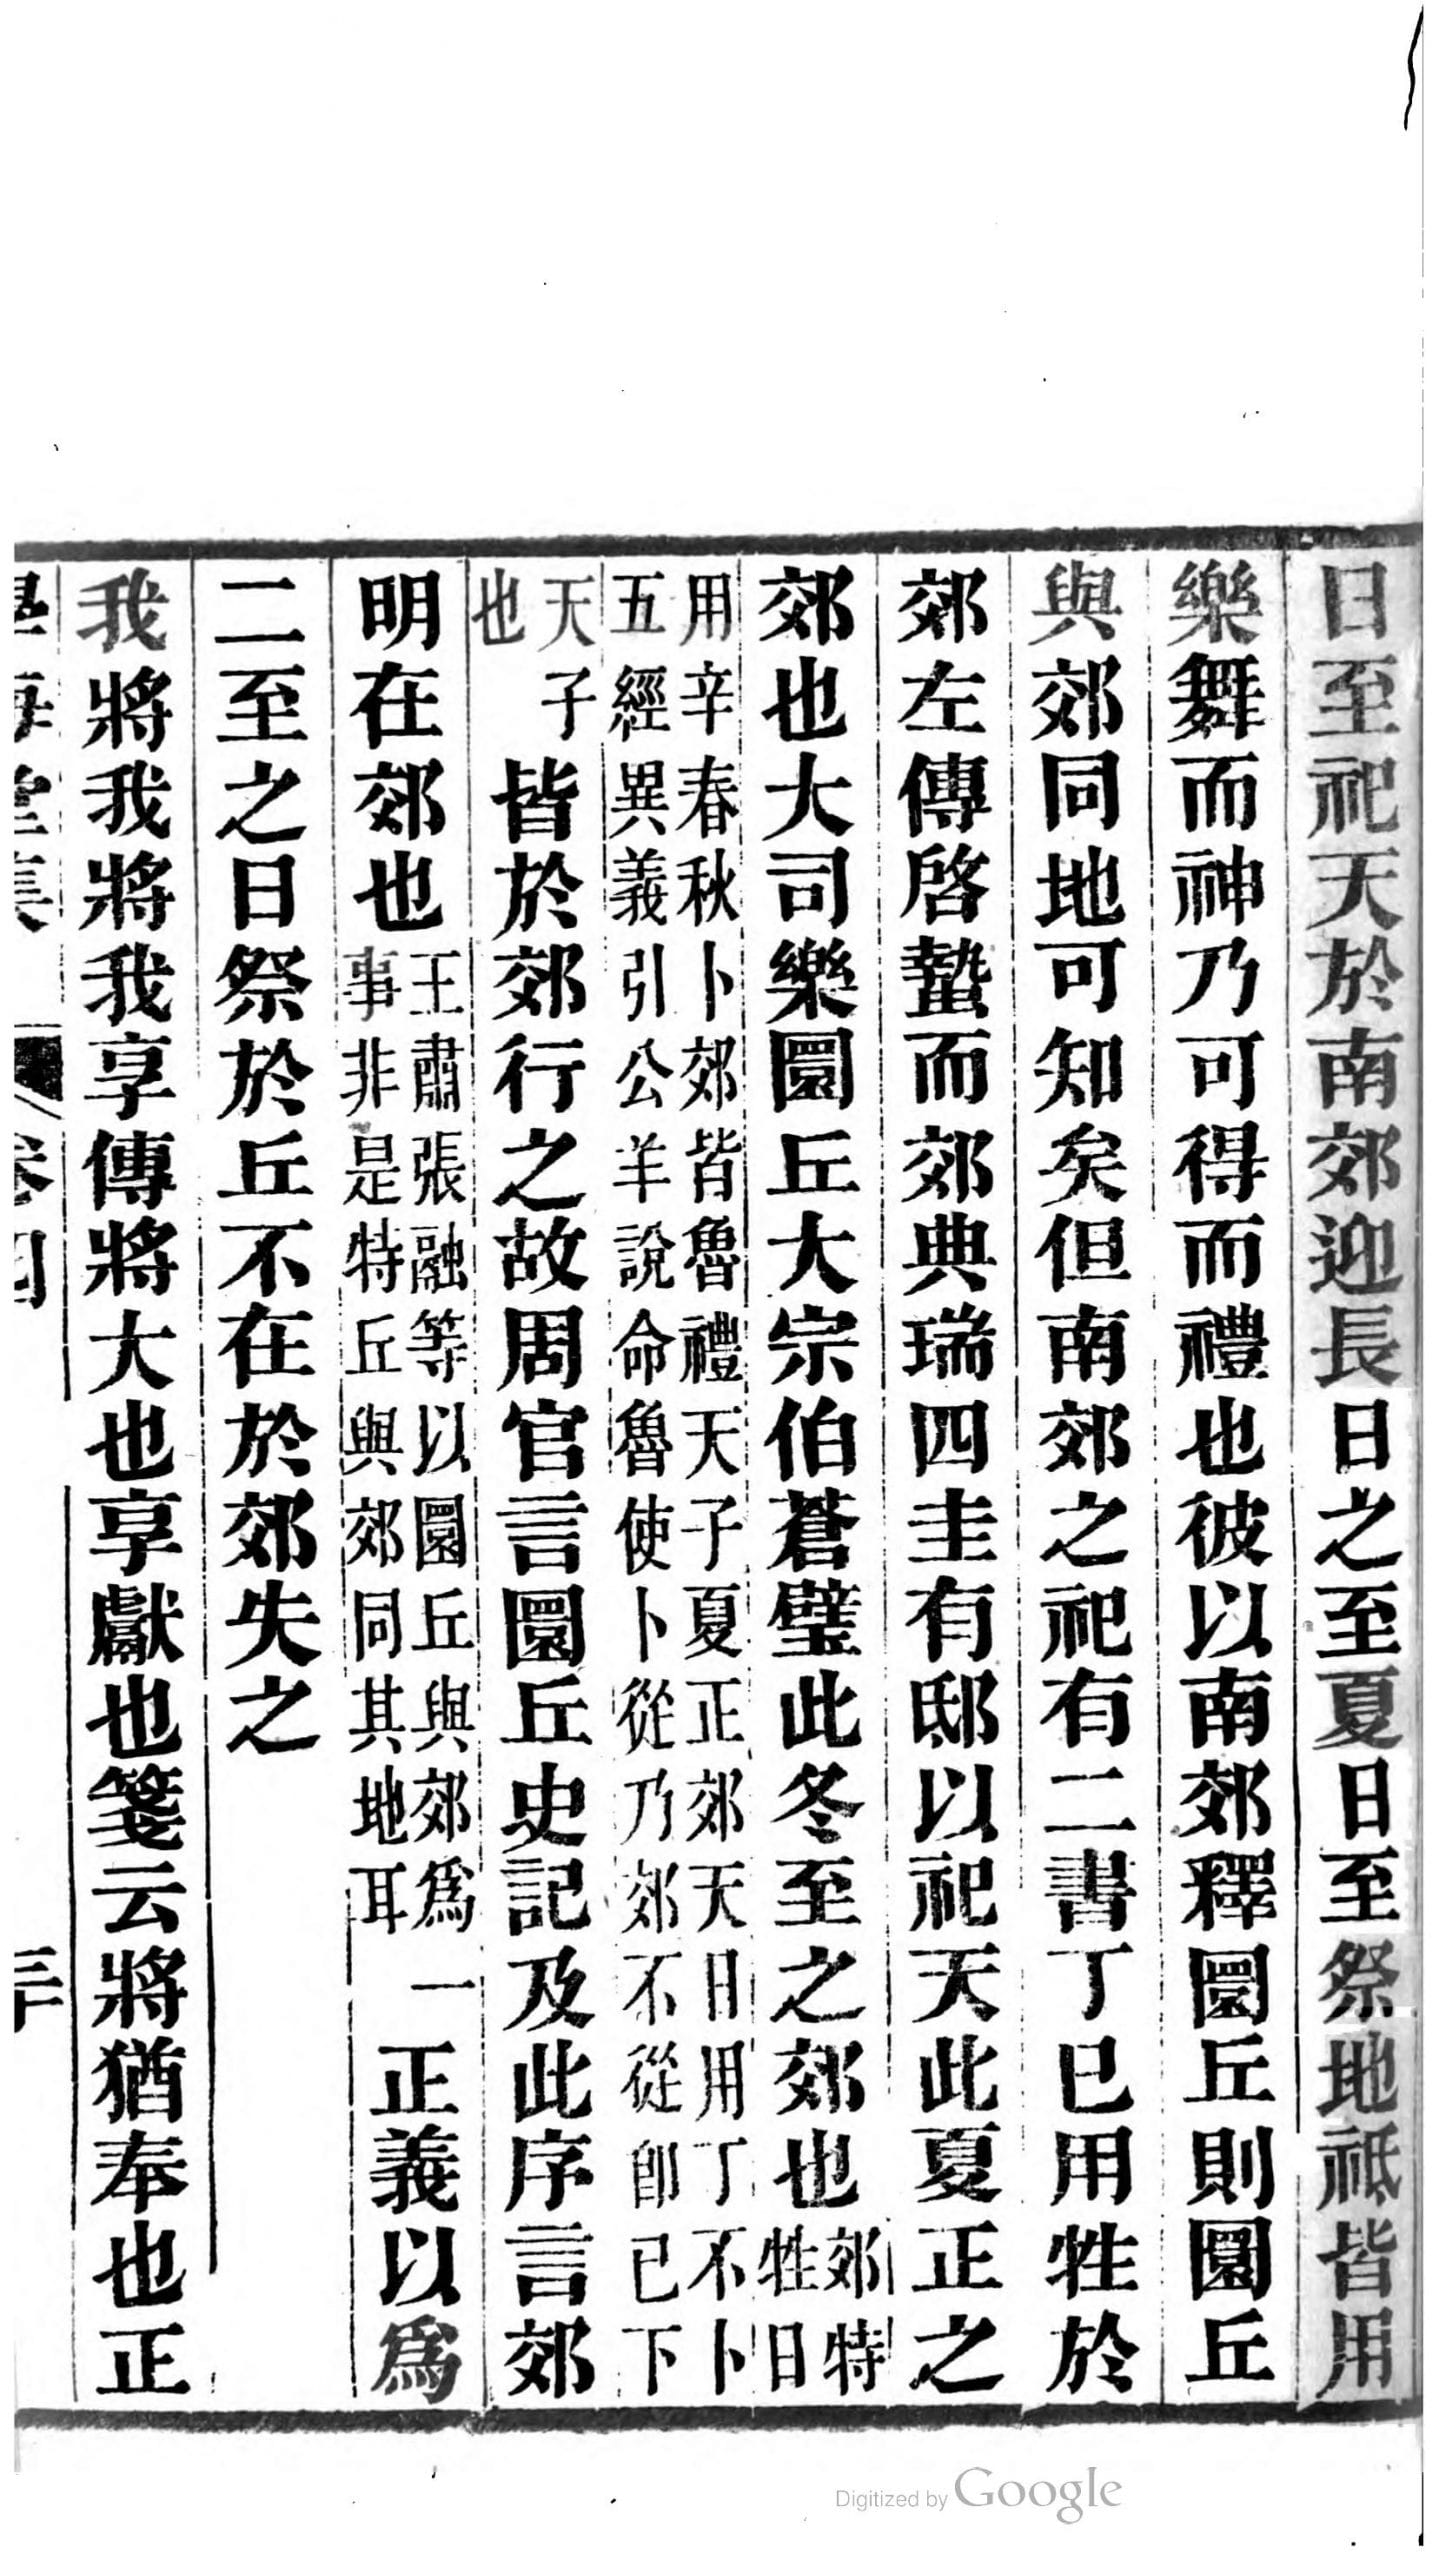 日至祀天於南郊迎長日之至夏日至祭地祗皆用
樂舞而神乃可得而禮也彼以南郊釋圜丘則圜丘
與郊同地可知矣但南郊之祀有二書丁巳用牲於
郊左傳啓蟄而郊典瑞四圭有邸以祀天此夏正之
郊也大司樂圜丘大宗伯蒼璧此冬至之郊也郊特牲日
用辛春秋卜郊皆魯禮天子夏正郊天日用丁不卜
五經異義引公羊說命魯使卜從乃郊不從卽已下
天子也皆於郊行之故周官言圜丘史記及此序言郊
明在郊也王肅張融等以圜丘與郊爲一事非是特丘與郊同其地耳正義以爲
二至之日祭於丘不在於郊失之
我將我將我享傳將大也享獻也箋云將猶奉也正
學海堂集 卷四 三十
Digitized by Google